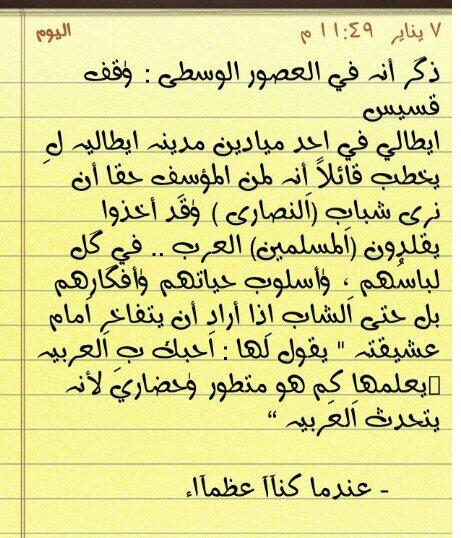 ٧ يناير ١١:٤٩ م اليوم
ذكر أنه في العصور الوسطى : وقف
قسيس
ايطالي في احد ميادين مدينه ايطاليه لِ
يخطب قائلاً أنه لمن المؤسف حقا أن
نرى شباب (اَلنصارى ) وَقَد أخذوا
يقلدون (اَلمسلمين) العرب .. في گل
لباسُهم ، وَأسلوب حياتهم وَأفگارهم
بل حتى اَلشاب اذا أراد أن يتفاخر أمام
عشيقته " يقول لَها : اَحبك ب اَلعربيه
يعلمها كم هو متطور وَحضاريَ لأنه
يتحدث اَلعَربيه “
- عندما كنآآ عظمآاء